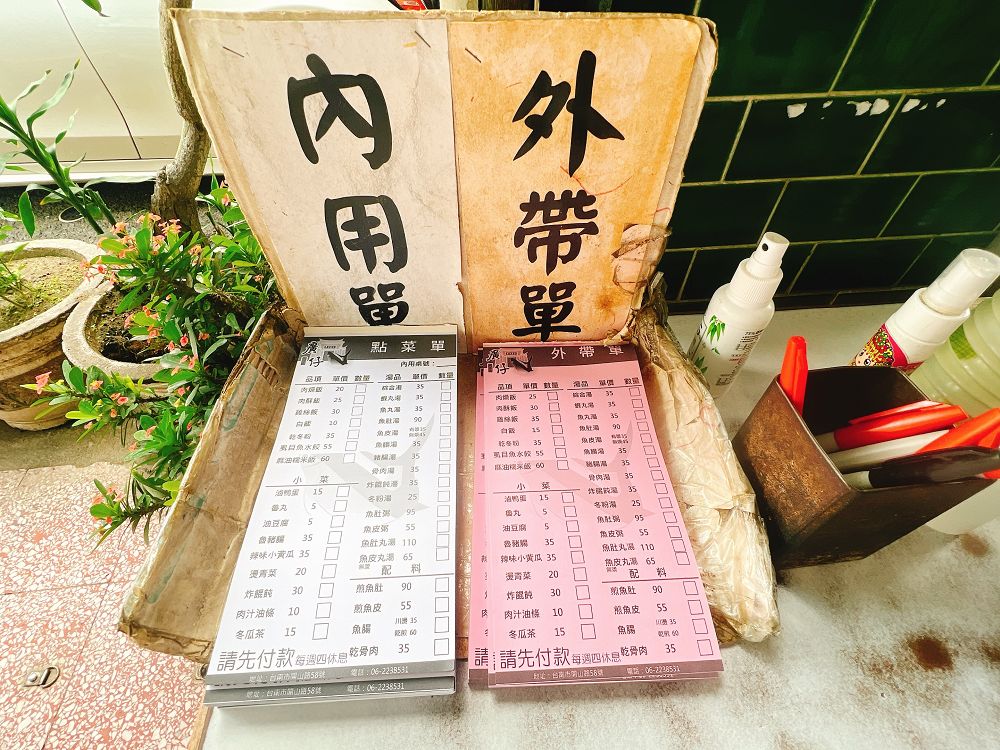 內用單
外帶單
點菜單
內用桌號：
品項 單價 數量 湯品 單價 數量
肉燥飯 20 綜合湯 35
肉酥飯 25 蝦丸湯 35
雞絲飯 30 魚丸湯 35
白飯 10 魚肚湯 90
乾冬粉 35 魚皮湯
虱目魚水餃 55 魚腸湯 35
麻油糯米飯 60 豬腸湯 35
骨肉湯 35
小菜 炸餛飩湯 35
滷鴨蛋 15 冬粉湯 25
魯丸 5 魚肚粥 95
油豆腐 5 魚皮粥 55
魯豬腸 35 魚肚丸湯 110
辣味小黃瓜 35 魚皮丸湯 65
燙青菜 20 配料
炸餛飩 30 煎魚肚 90
肉汁油條 10 煎魚皮 55
冬瓜茶 15 魚腸 川燙 35
乾煎 60
乾骨肉 35
請先付款 每週四休息
地址：台南市開山路58號 電話：06-2238531
外帶單
品項 單價 數量 湯品 單價 數量
肉燥飯 25 綜合湯 35
肉酥飯 30 蝦丸湯 35
雞絲飯 35 魚丸湯 35
白飯 15 魚肚湯 90
乾冬粉 35 魚皮湯
虱目魚水餃 55 魚腸湯 35
麻油糯米飯 60 豬腸湯 35
骨肉湯 35
小菜 炸餛飩湯 35
滷鴨蛋 15 冬粉湯 25
魯丸 5 魚肚粥 95
油豆腐 5 魚皮粥 55
魯豬腸 35 魚肚丸湯 110
辣味小黃瓜 35 魚皮丸湯 65
燙青菜 20 配料
炸餛飩 30 煎魚肚 90
肉汁油條 10 煎魚皮 55
冬瓜茶 15 魚腸 川燙 35
乾煎 60
乾骨肉 35
請先付款 每週四休息
地址：台南市開山路58號 電話：06-2238531